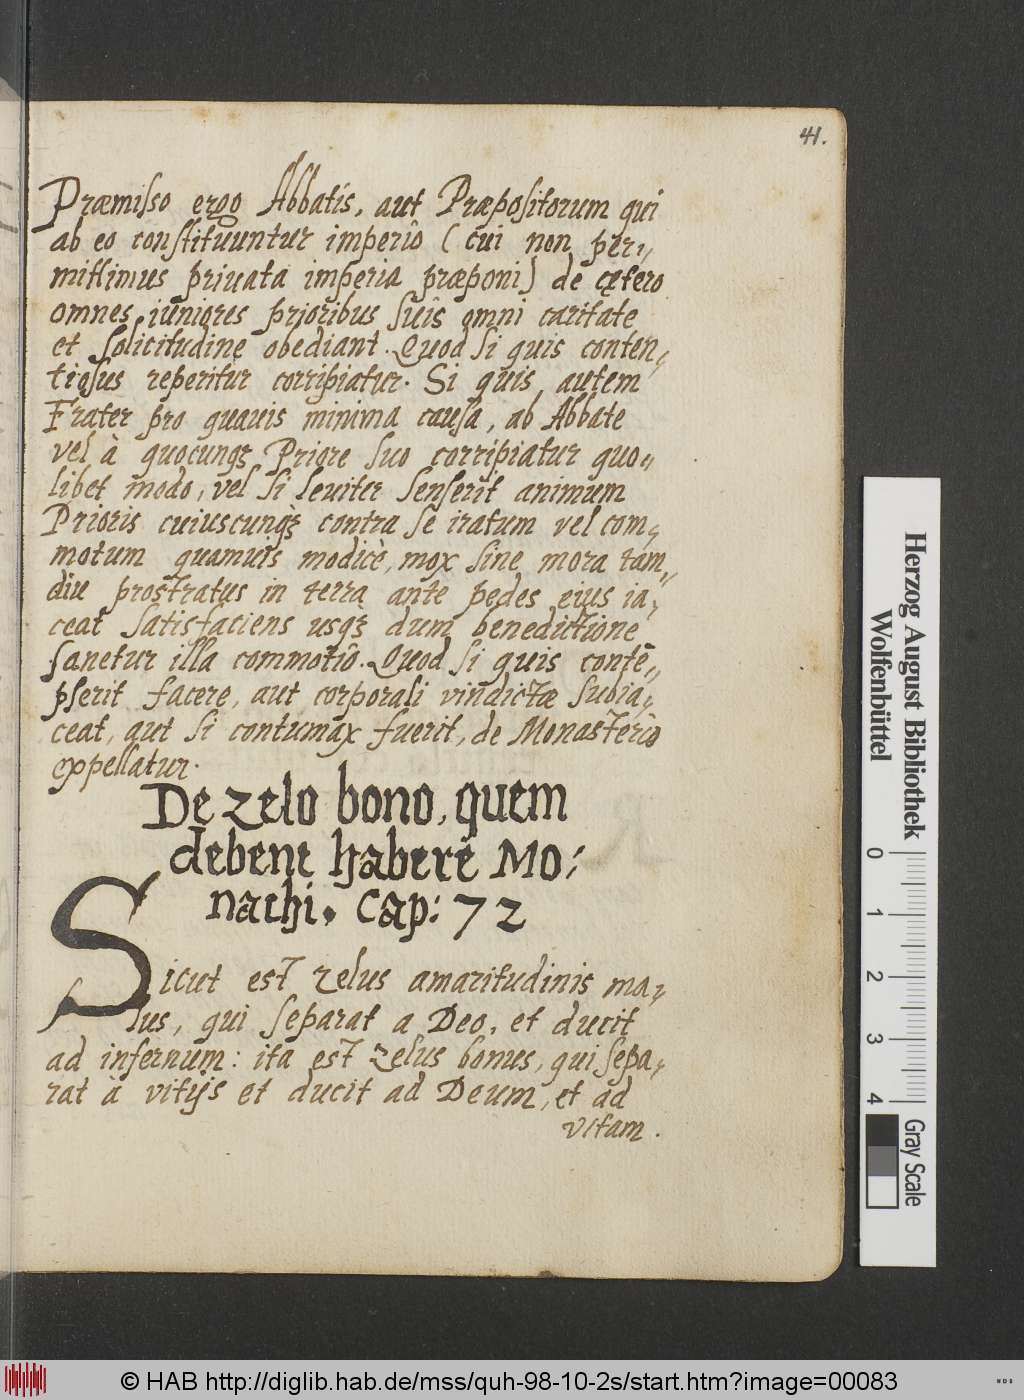 41.
Præmisso ergo Abbatis, aut Præpositorum qui
ab eo constituuntur imperio (cui non per„
mittimus priuata imperia præponi) de cętero
omnes iuniores prioribus suis omni caritate
et solicitudine obediant. Quod si quis conten„
tiosus reperitur corripiatur. Si quis autem
Frater pro quauis minima causa, ab Abbate
vel à quocunqȝ Priore suo corripiatur quo„
libet modo, vel si leuiter senserit animum
Prioris cuiuscunqȝ contra se iratum vel com„
motum quamuis modicè, mox sine mora tam„
diu prostratus in terra ante pedes eius ia„
ceat satisfaciens usqȝ dum benedictione
sanetur illa commotio. Quod si quis contē„
pserit facere, aut corporali vindictæ subia„
ceat, aut si contumax fuerit, de Monasterio
expellatur.
De zelo bono, quem
debent habere Mo:
nachi. Cap: 72
Sicut est zelus amaritudinis ma„
lus, qui separat a Deo, et ducit
ad infernum: ita est zelus bonus, qui sepa„
rat à vitijs et ducit ad Deum, et ad
vitam.
Herzog August Bibliothek
Wolfenbüttel
0 1 2 3 4
Gray Scale
© HAB http://diglib.hab.de/mss/quh-98-10-2s/start.htm?image=00083